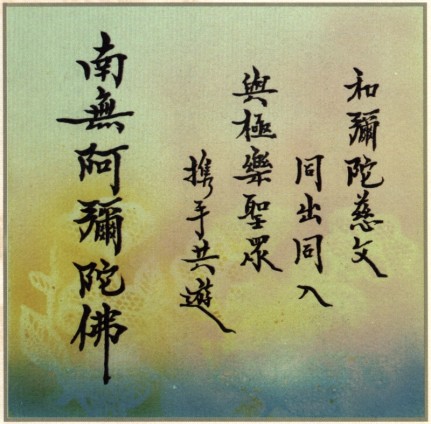 和彌陀慈文
同出同入
與極樂聖眾
携手共遊
南無阿彌陀佛